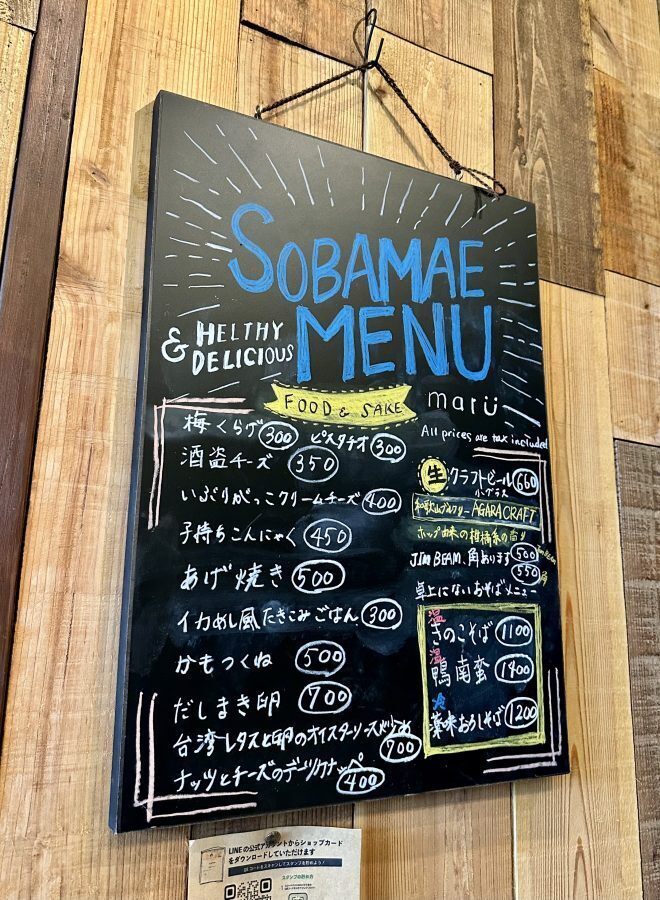 SOBAMAE
MENU
& HELTHY
DELICIOUS
FOOD & SAKE
marü
All prices are tax included
梅くらげ 300 ピスタチオ 300
酒盗チーズ 350
いぶりがっこクリームチーズ 400
子持ちこんにゃく 450
あげ焼き 500
イカめし風たきこみごはん 300
かもつくね 500
だしまき卵 700
台湾レタスと卵のオイスターソース炒め 700
ナッツとチーズのデーツカナッペ 400
生 クラフトビール 660
小グラス
和歌山ブルワリー AGARA CRAFT
ホップ由来の柑橘系の香り
JIM BEAM、角あります 500
550 角
卓上にないおそばメニュー
温
きのこそば 1100
温
鴨南蛮 1400
冷
薬味おろしそば 1200
LINEの公式アカウントからショップカード
をダウンロードしていただけます